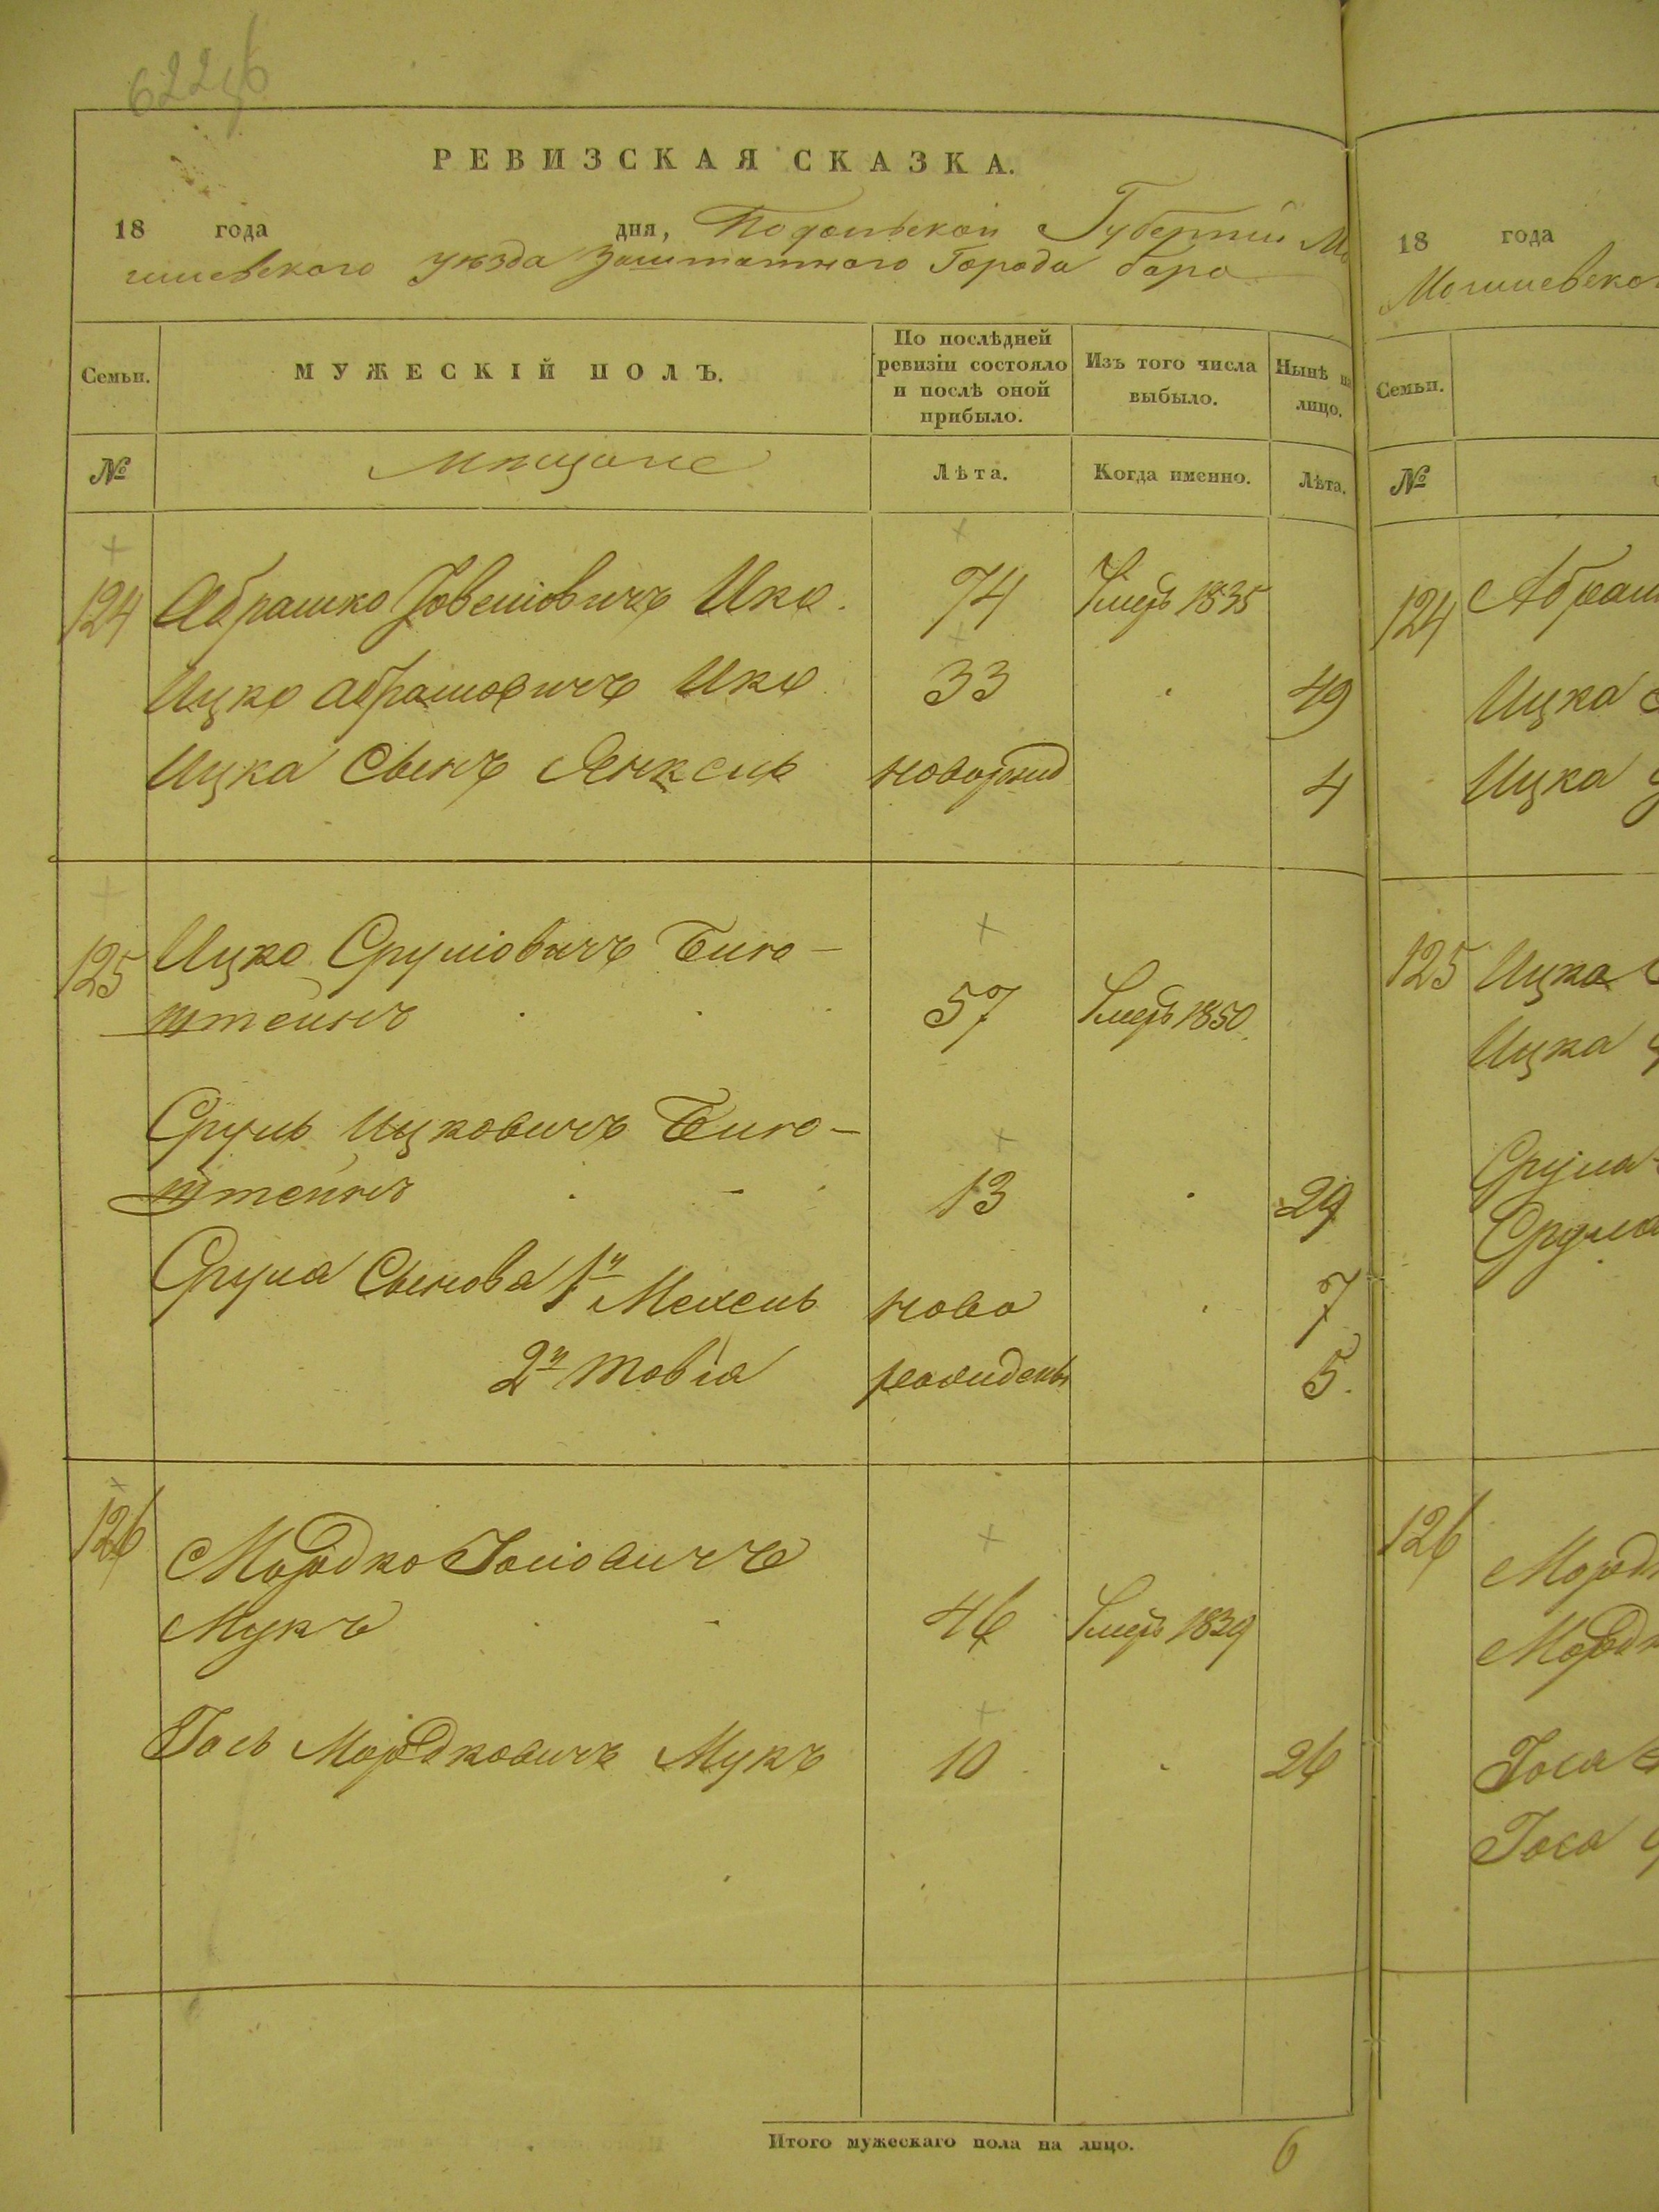 622 об
РЕВИЗСКАЯ СКАЗКА.
18 года дня, Подольской Губернии Мо
гилевского уезда Заштатного Города бара
Семьи. МУЖЕСКІЙ ПОЛЪ. По послѣдней ревизіи состояло и послѣ оной прибыло. Изъ того числа выбыло. Нынѣ на лицо.
№ Мещане Лѣта. Когда именно. Лѣта.
124 Абрашко Иовеліовичъ Икс. 74 Умеръ 1835
Ицко Абрамовичъ Икс 33 49
Ицка Сынъ Янкель новорожд 4
125 Ицко Сруліовичъ Биго-
штейнъ 57 Умеръ 1850.
Сруль Ицковичъ Биго-
штейнъ 13 29
Сруля Сынова 1й Мехель ново 7
2й Товіа рожидены 5.
126 Мордко Іосіовичъ
Мукъ 46 Умеръ 1839
Іось Мордковичъ Мукъ 10 26
Итого мужескаго пола на лицо. 6
18 года
Могилевског
Семьи.
№
124 Абраш
Ицка
Ицка
125 Ицка
Ицка
Сруля
Сруля
126 Мордк
Мордк
Іося
Іося